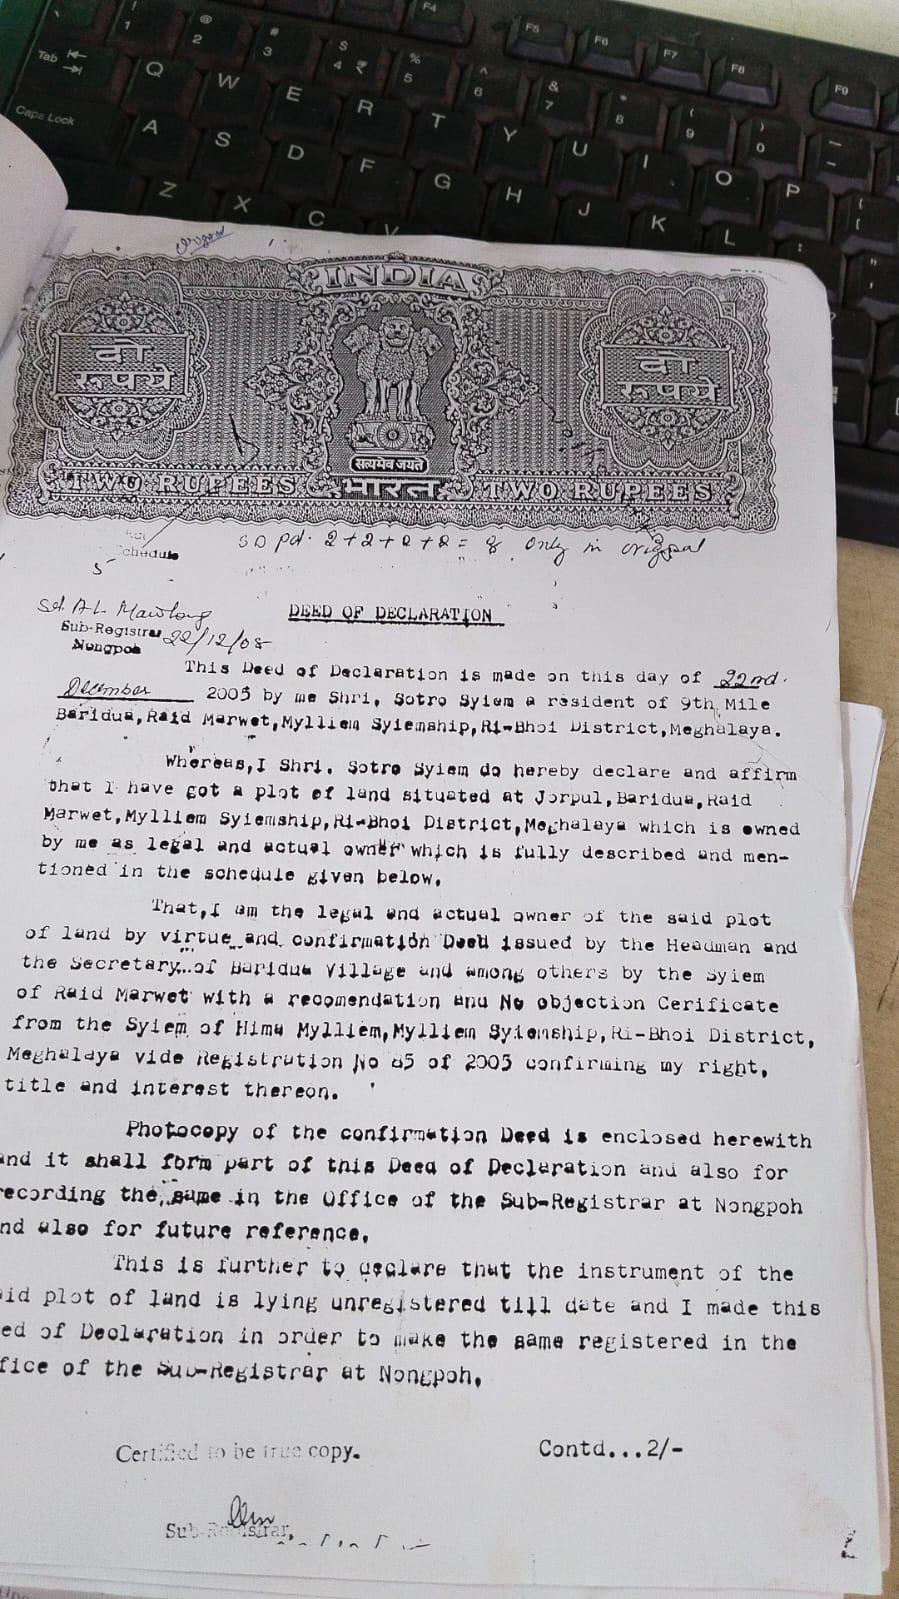 F4 F5 F6 F7 F8 F9
! 1 @ 2 # 3 $ 4 ₹ % 5 ^ 6 & 7 * 8 ( 9 ) 0
Tab Q W E R T Y U I O P
Caps Lock A S D F G H J K L
Z X C V
INDIA
दो
रूपये
दो
रूपये
सत्यमेव जयते
TWO RUPEES भारत TWO RUPEES
Schedule
S D pd. 2+2+2+2 = 8 only in original
5
Sd. A L Mawlong
Sub-Registrar 22/12/05
Nongpoh
DEED OF DECLARATION
This Deed of Declaration is made on this day of 22nd.
December 2005 by me Shri. Sotro Syiem a resident of 9th Mile
Baridua,Raid Marwet,Mylliem Syiemship,Ri-Bhoi District,Meghalaya.
Whereas,I Shri. Sotro Syiem do hereby declare and affirm
that I have got a plot of land situated at Jorpul,Baridua,Raid
Marwet,Mylliem Syiemship,Ri-Bhoi District,Meghalaya which is owned
by me as legal and actual owner which is fully described and men-
tioned in the schedule given below.
That,I am the legal and actual owner of the said plot
of land by virtue and confirmation Deed issued by the Headman and
the Secretary of Baridua Village and among others by the Syiem
of Raid Marwet with a recomendation and No objection Cerificate
from the Syiem of Hima Mylliem,Mylliem Syiemship,Ri-Bhoi District,
Meghalaya vide Registration No 85 of 2005 confirming my right,
title and interest thereon.
Photocopy of the confirmation Deed is enclosed herewith
nd it shall form part of this Deed of Declaration and also for
recording the same in the Office of the Sub-Registrar at Nongpoh
nd also for future reference.
This is further to declare that the instrument of the
id plot of land is lying unregistered till date and I made this
ed of Declaration in order to make the same registered in the
fice of the Sub-Registrar at Nongpoh.
Certified to be true copy.
Contd...2/-
Sub-Registrar,